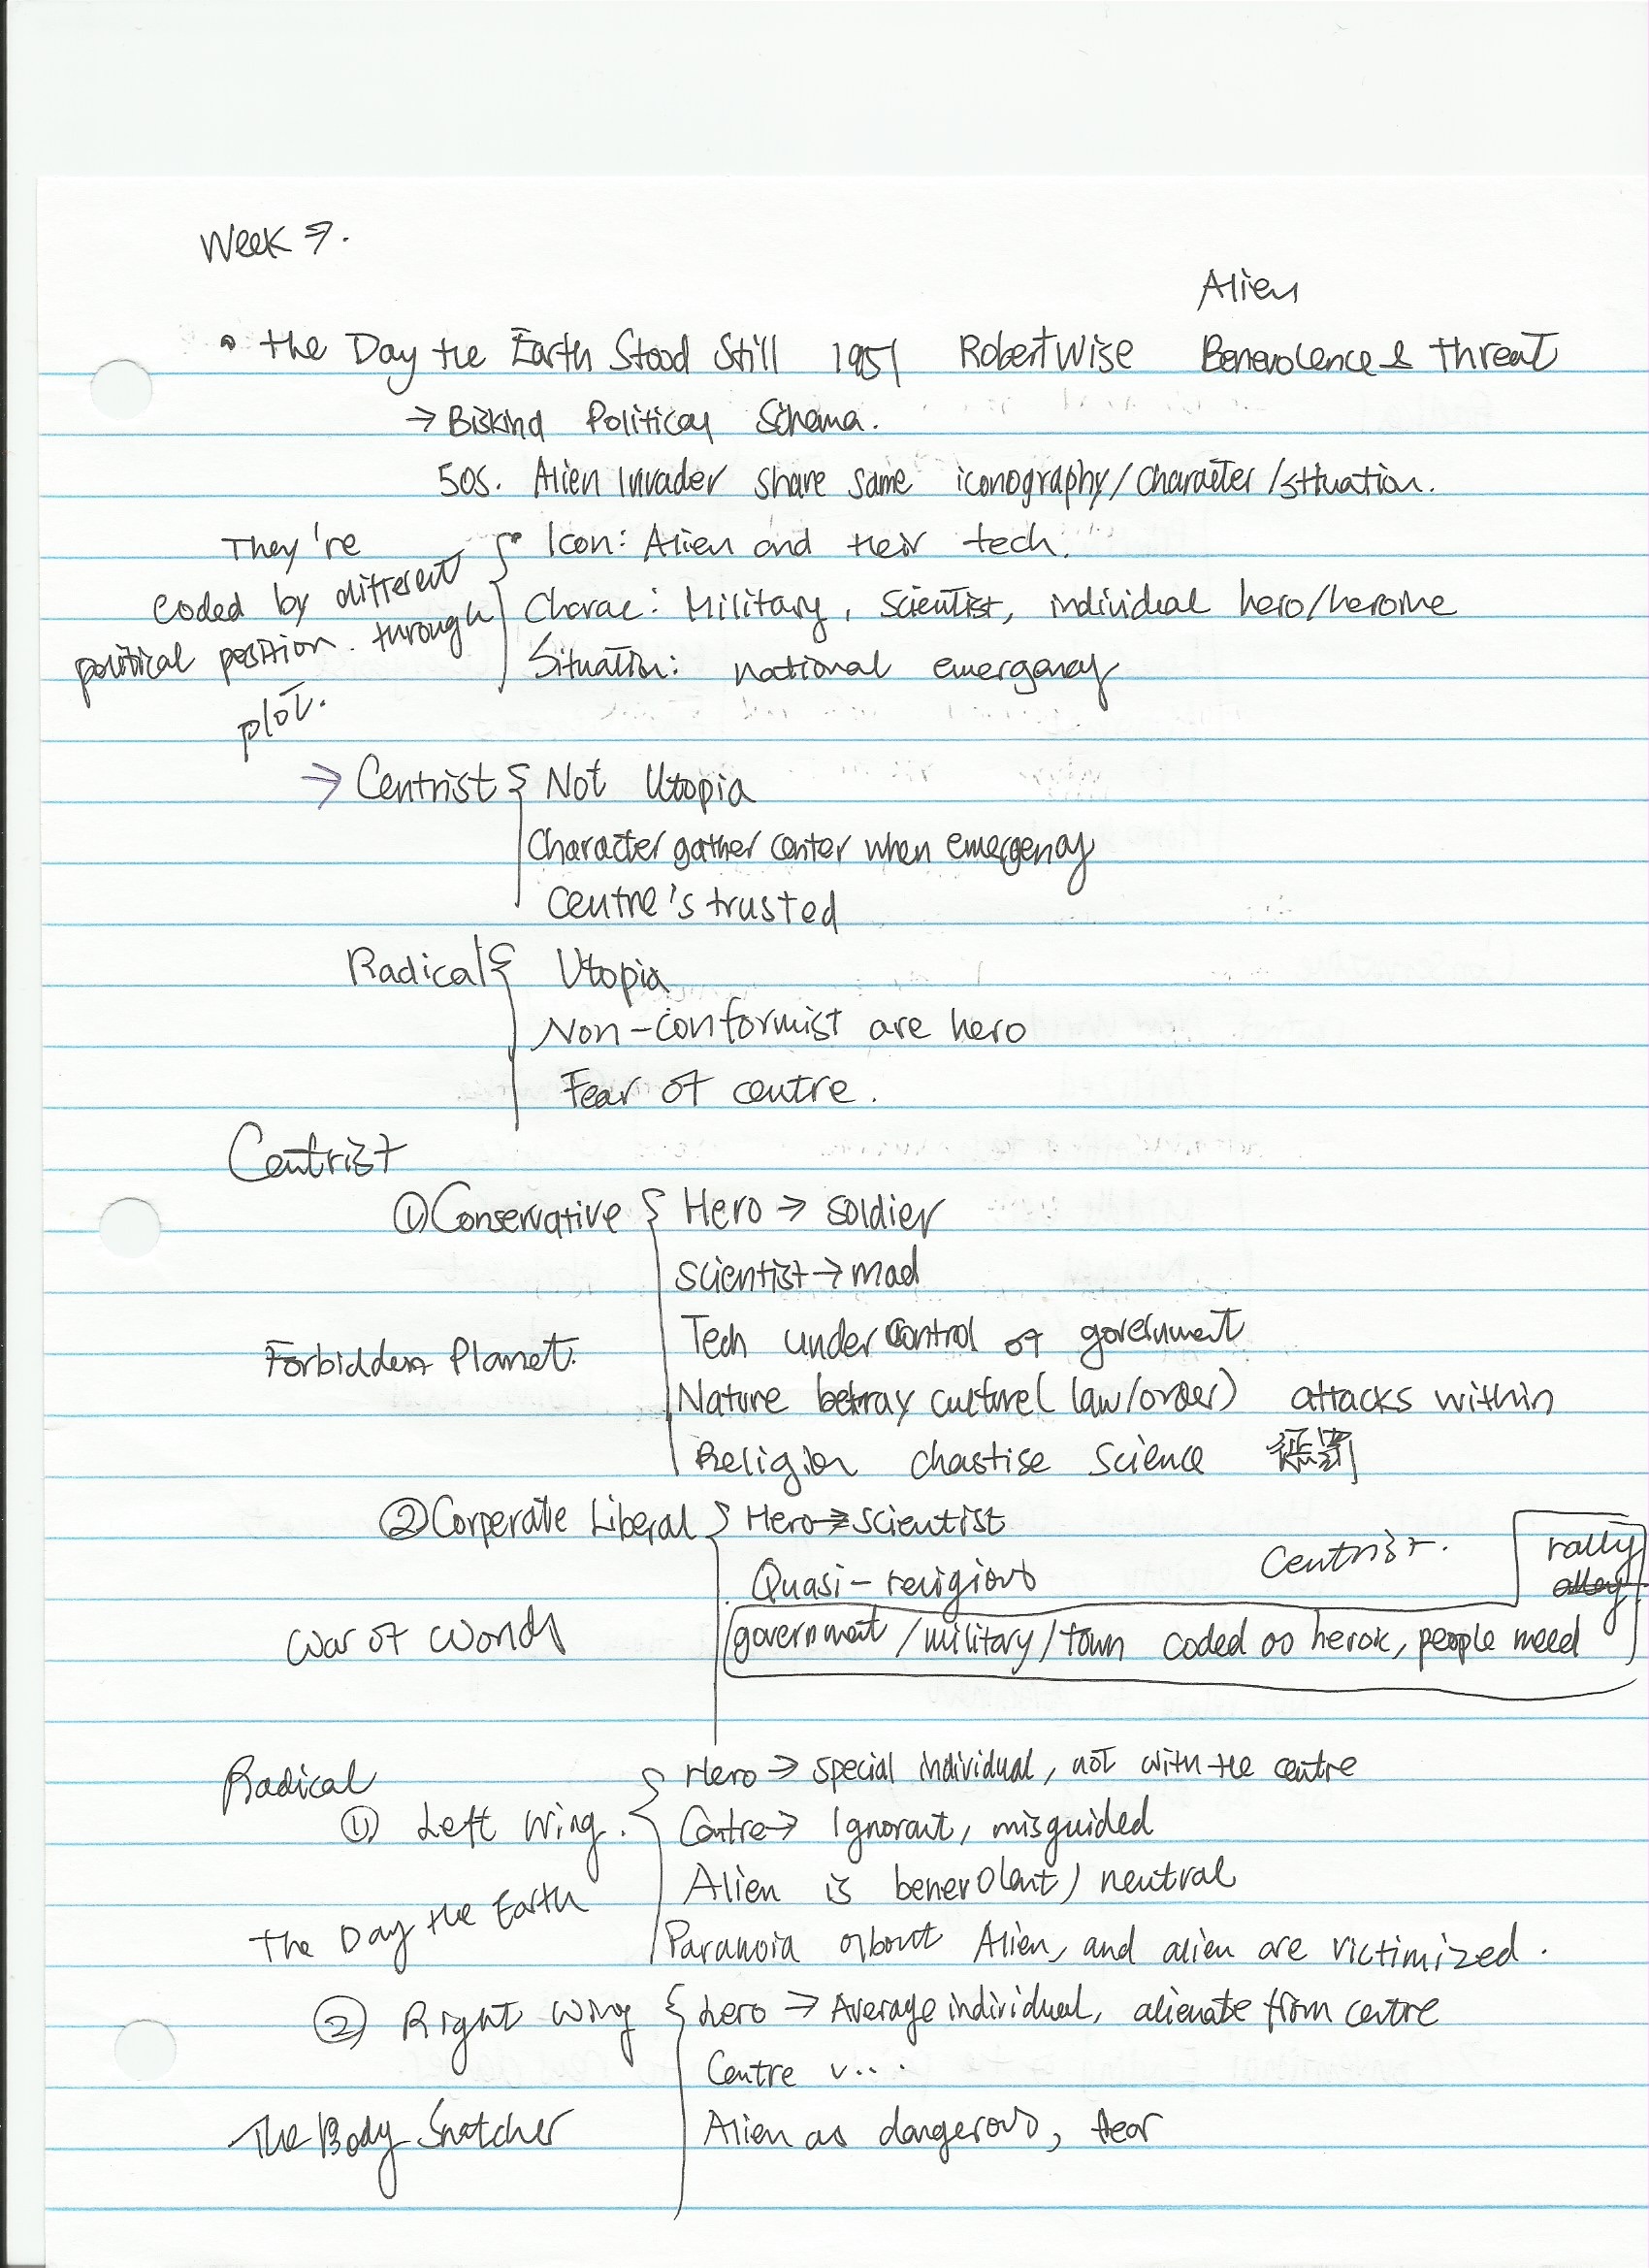 Week 7.
Alien
• The Day the Earth Stood Still 1951 Robert Wise Benevolence & threat
→ Biskind Political Schema.
50s. Alien Invader share same iconography/character/situation.
They're
coded by different
political position through
plot.
Icon: Alien and their tech.
Charac: Military, scientist, individual hero/heroine
Situation: national emergency
→ Centrist { Not Utopia
Character gather center when emergency
Centre's trusted
Radical { Utopia
Non-conformist are hero
Fear of centre.
Centrist
① Conservative { Hero → soldier
Scientist → mad
Tech under control of government
Forbidden Planet.
Nature betray culture (law/order) attacks within
Religion chastise science 惩罚
② Corperate Liberal { Hero → scientist
Quasi-religious
Centrist.
rally
alley
War of Worlds
government/military/town coded as heroic, people need
Radical
① Left Wing. { Hero → special individual, not with the centre
Centre → Ignorant, misguided
Alien is benevolent / neutral
The Day the Earth
Paranoia about Alien, and alien are victimized.
② Right Wing { hero → Average individual, alienate from centre
Centre v...
The Body Snatcher
Alien as dangerous, fear